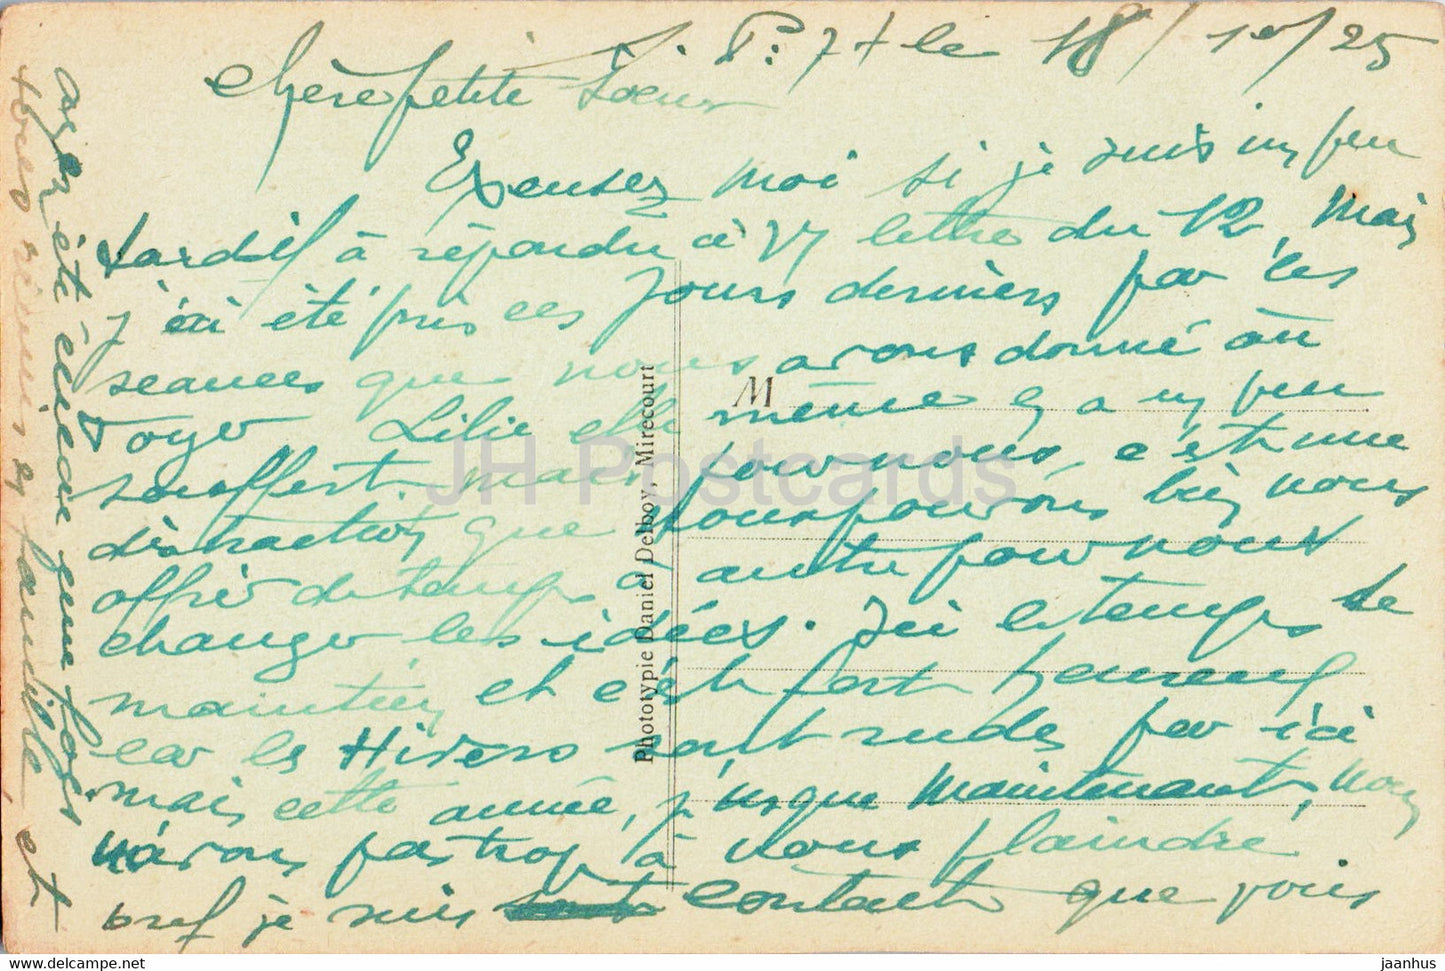 S. P. 77 le 18/10/25
chère petite Soeur
Excusez moi si je suis un peu
tardif à répondre à V/ lettre du 12, mais
j'ai été pris ces jours derniers par les
seances que nous avons donné au
Foyer Lilie elle même y a un peu
souffert. mais pour nous, c'est une
distraction que nous pouvons bien nous
offrir de temps à autre pour nous
changer les idées. Ici le temps se
maintien et c'est fort heureux
car les Hivers sont rudes par ici
mais cette année, j'usque maintenant, nous
n'avons pas trop à nous plaindre
bref je suis content que vous
ayez été élue une fois
tous réunis en famille et
M
Phototypie Daniel Delboy, Mirecourt
JH Postcards
https://jh-postcards.myshopify.com
jaanhus